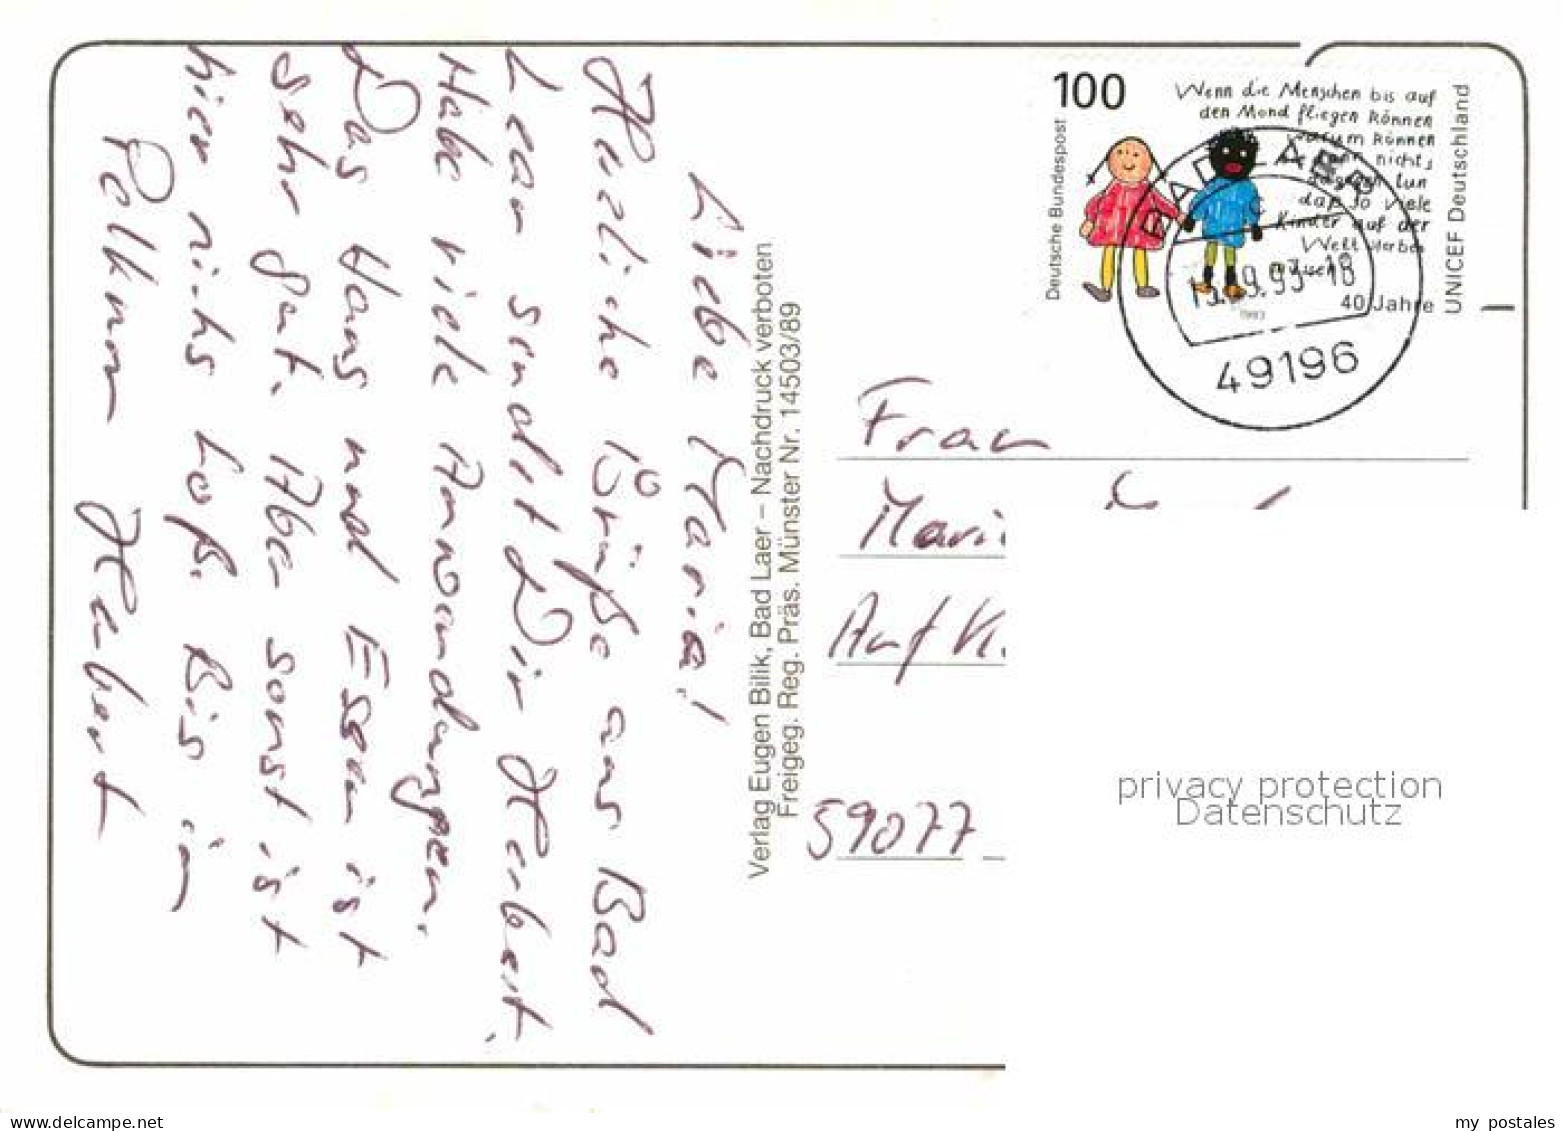 Liebe Maria!
Herzliche Grüße aus Bad
Laer sendet Dir Herbert.
Habe viele Anwendungen.
Das Haus und Essen ist
sehr gut. Aber sonst ist
hier nichs Loß. Bis in
Pelkum Herbert
Verlag Eugen Bilik, Bad Laer – Nachdruck verboten
Freigeg. Reg. Präs. Münster Nr. 14503/89
100
Deutsche Bundespost
Wenn die Menschen bis auf
den Mond fliegen können
warum können
sie dann nichts
dagegen tun
daß so viele
Kinder auf der
Welt sterben
müssen
40 Jahre
UNICEF Deutschland
1993
BAD LAER
c
.9.93-18
49196
Frau
Mari
Auf
59077
privacy protection
Datenschutz
www.delcampe.net
my_postales